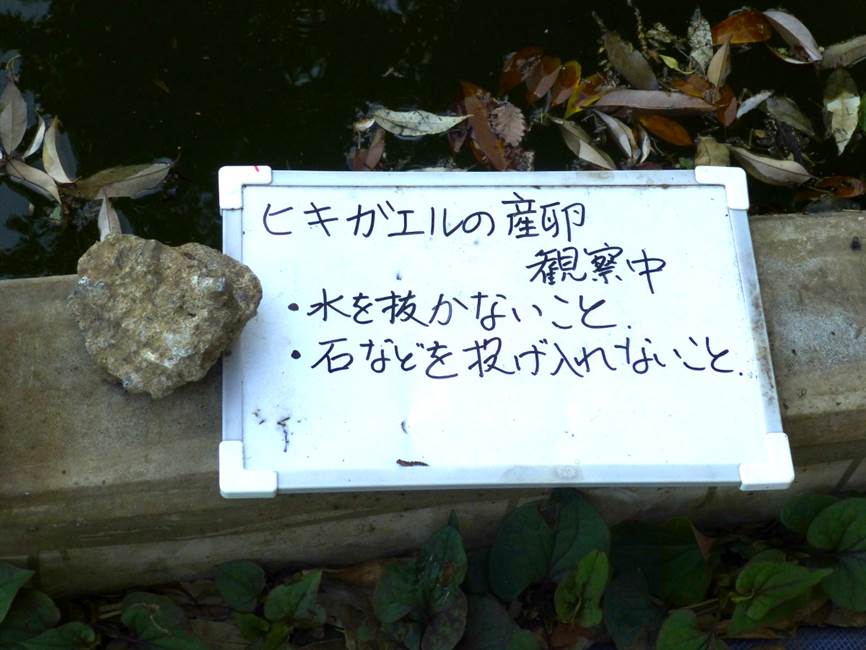 ヒキガエルの産卵
観察中
・水を抜かないこと.
・石などを投げ入れないこと.